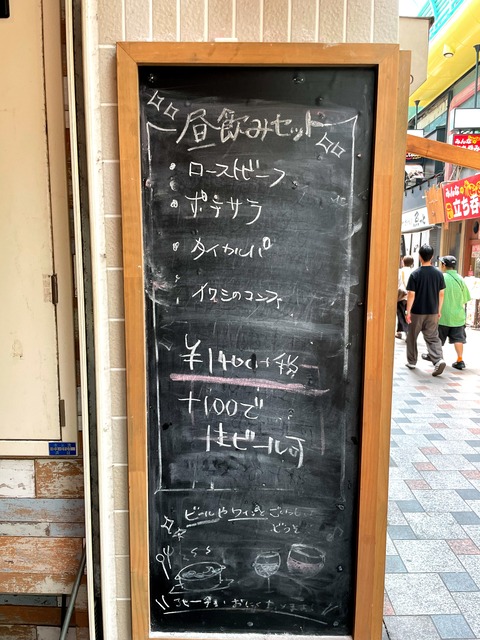 昼飲みセット
ローストビーフ
ポテサラ
タイカルパ
イワシのコンフィ
¥1400+税
+100で
生ビール可
ビールやワインと
どうぞ
みんなの
立ち呑